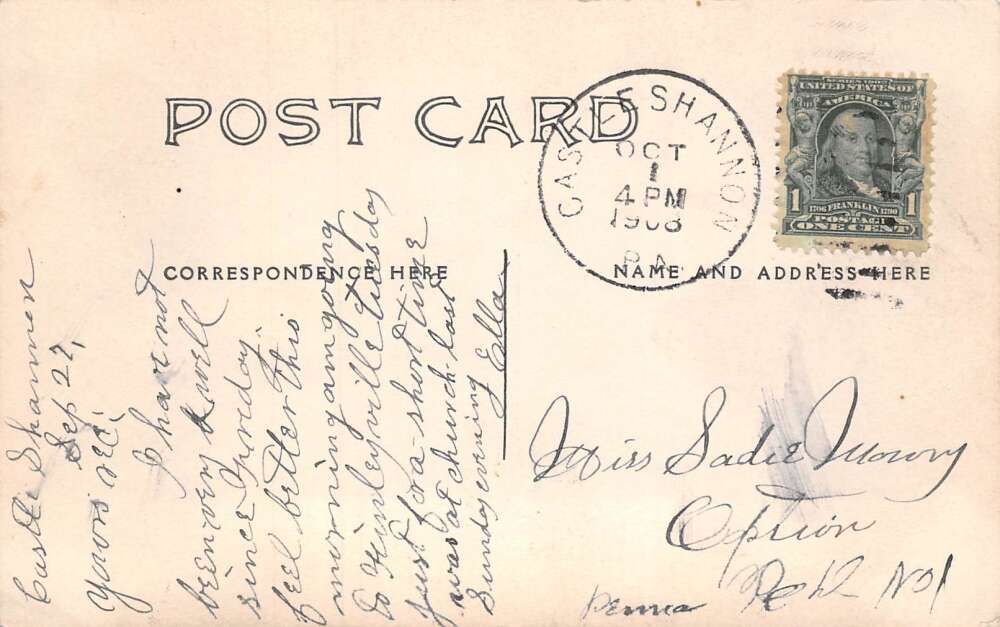 POST CARD
CORRESPONDENCE HERE
NAME AND ADDRESS HERE
CASTLE SHANNON
OCT
1
4 PM
1908
PA.
SERIES 1902
UNITED STATES OF
AMERICA
1 1
1706 FRANKLIN 1790
POSTAGE
ONE CENT
Castle Shannon
Sep 22,
Yours rec'
I have not
been very well
since Friday.
feel better this
morning am going
to Finleyville tuesday
just for a short time
was at church last
Sunday evening Ella
Miss Sadie Mowry
Option
Penna R F D No1